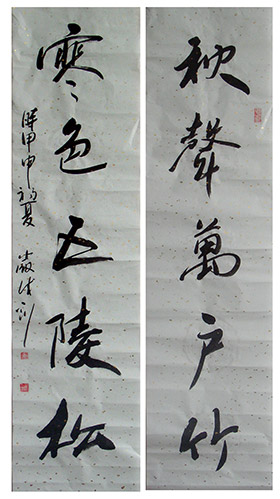 秋聲萬戶竹
寒色五陵松
甲申初夏